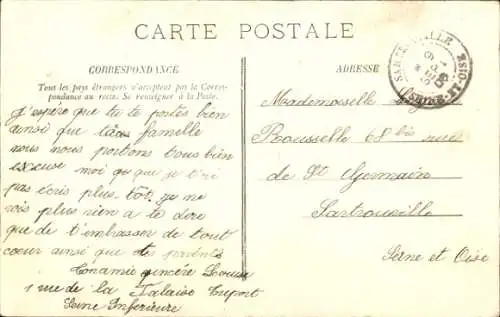 CARTE POSTALE
CORRESPONDANCE
Tous les pays étrangers n'acceptent pas la Corres-
pondance au recto. Se renseigner à la Poste.
J'espère que tu te portes bien
ainsi que ta famille
nous nous portons tous bien
excuse moi que je t'ai
pas écris plus tot. je ne
vois plus rien a te dire
que de t'embrasser de tout
coeur ainsi que tes parents
Ton amie sincère Louise
1 rue de la Falaise Tréport
Seine Inférieure
ADRESSE
SARTROUVILLE
SEINE-ET-OISE
Mademoiselle
Rousselle 68 bis rue
de St Germain
Sartrouville
Seine et Oise